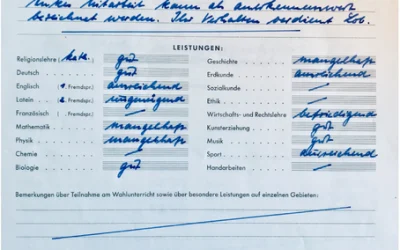 Mitarbeit kann als anerkennenswert
bezeichnet werden. Ihr Verhalten verdient Lob.
LEISTUNGEN:
Religionslehre (kath.) gut
Deutsch gut
Englisch (1. Fremdspr.) ausreichend
Latein (2. Fremdspr.) ungenügend
Französisch ( Fremdspr.) /
Mathematik mangelhaft
Physik mangelhaft
Chemie /
Biologie gut
Geschichte mangelhaft
Erdkunde ausreichend
Sozialkunde /
Ethik /
Wirtschafts- und Rechtslehre befriedigend
Kunsterziehung gut
Musik gut
Sport ausreichend
Handarbeiten /
Bemerkungen über Teilnahme am Wahlunterricht sowie über besondere Leistungen auf einzelnen Gebieten: